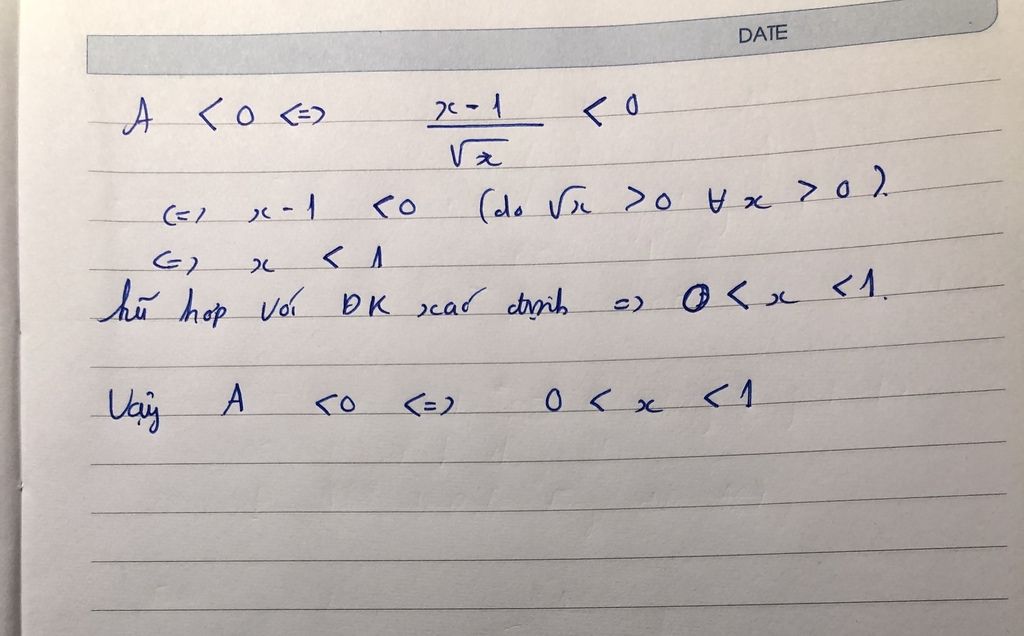 DATE
A < 0 <=> x-1 / √x < 0
<=> x-1 < 0 (do √x > 0 ∀ x > 0).
<=> x < 1
hữ hợp với ĐK xác định => 0 < x < 1.
Vậy A < 0 <=> 0 < x < 1